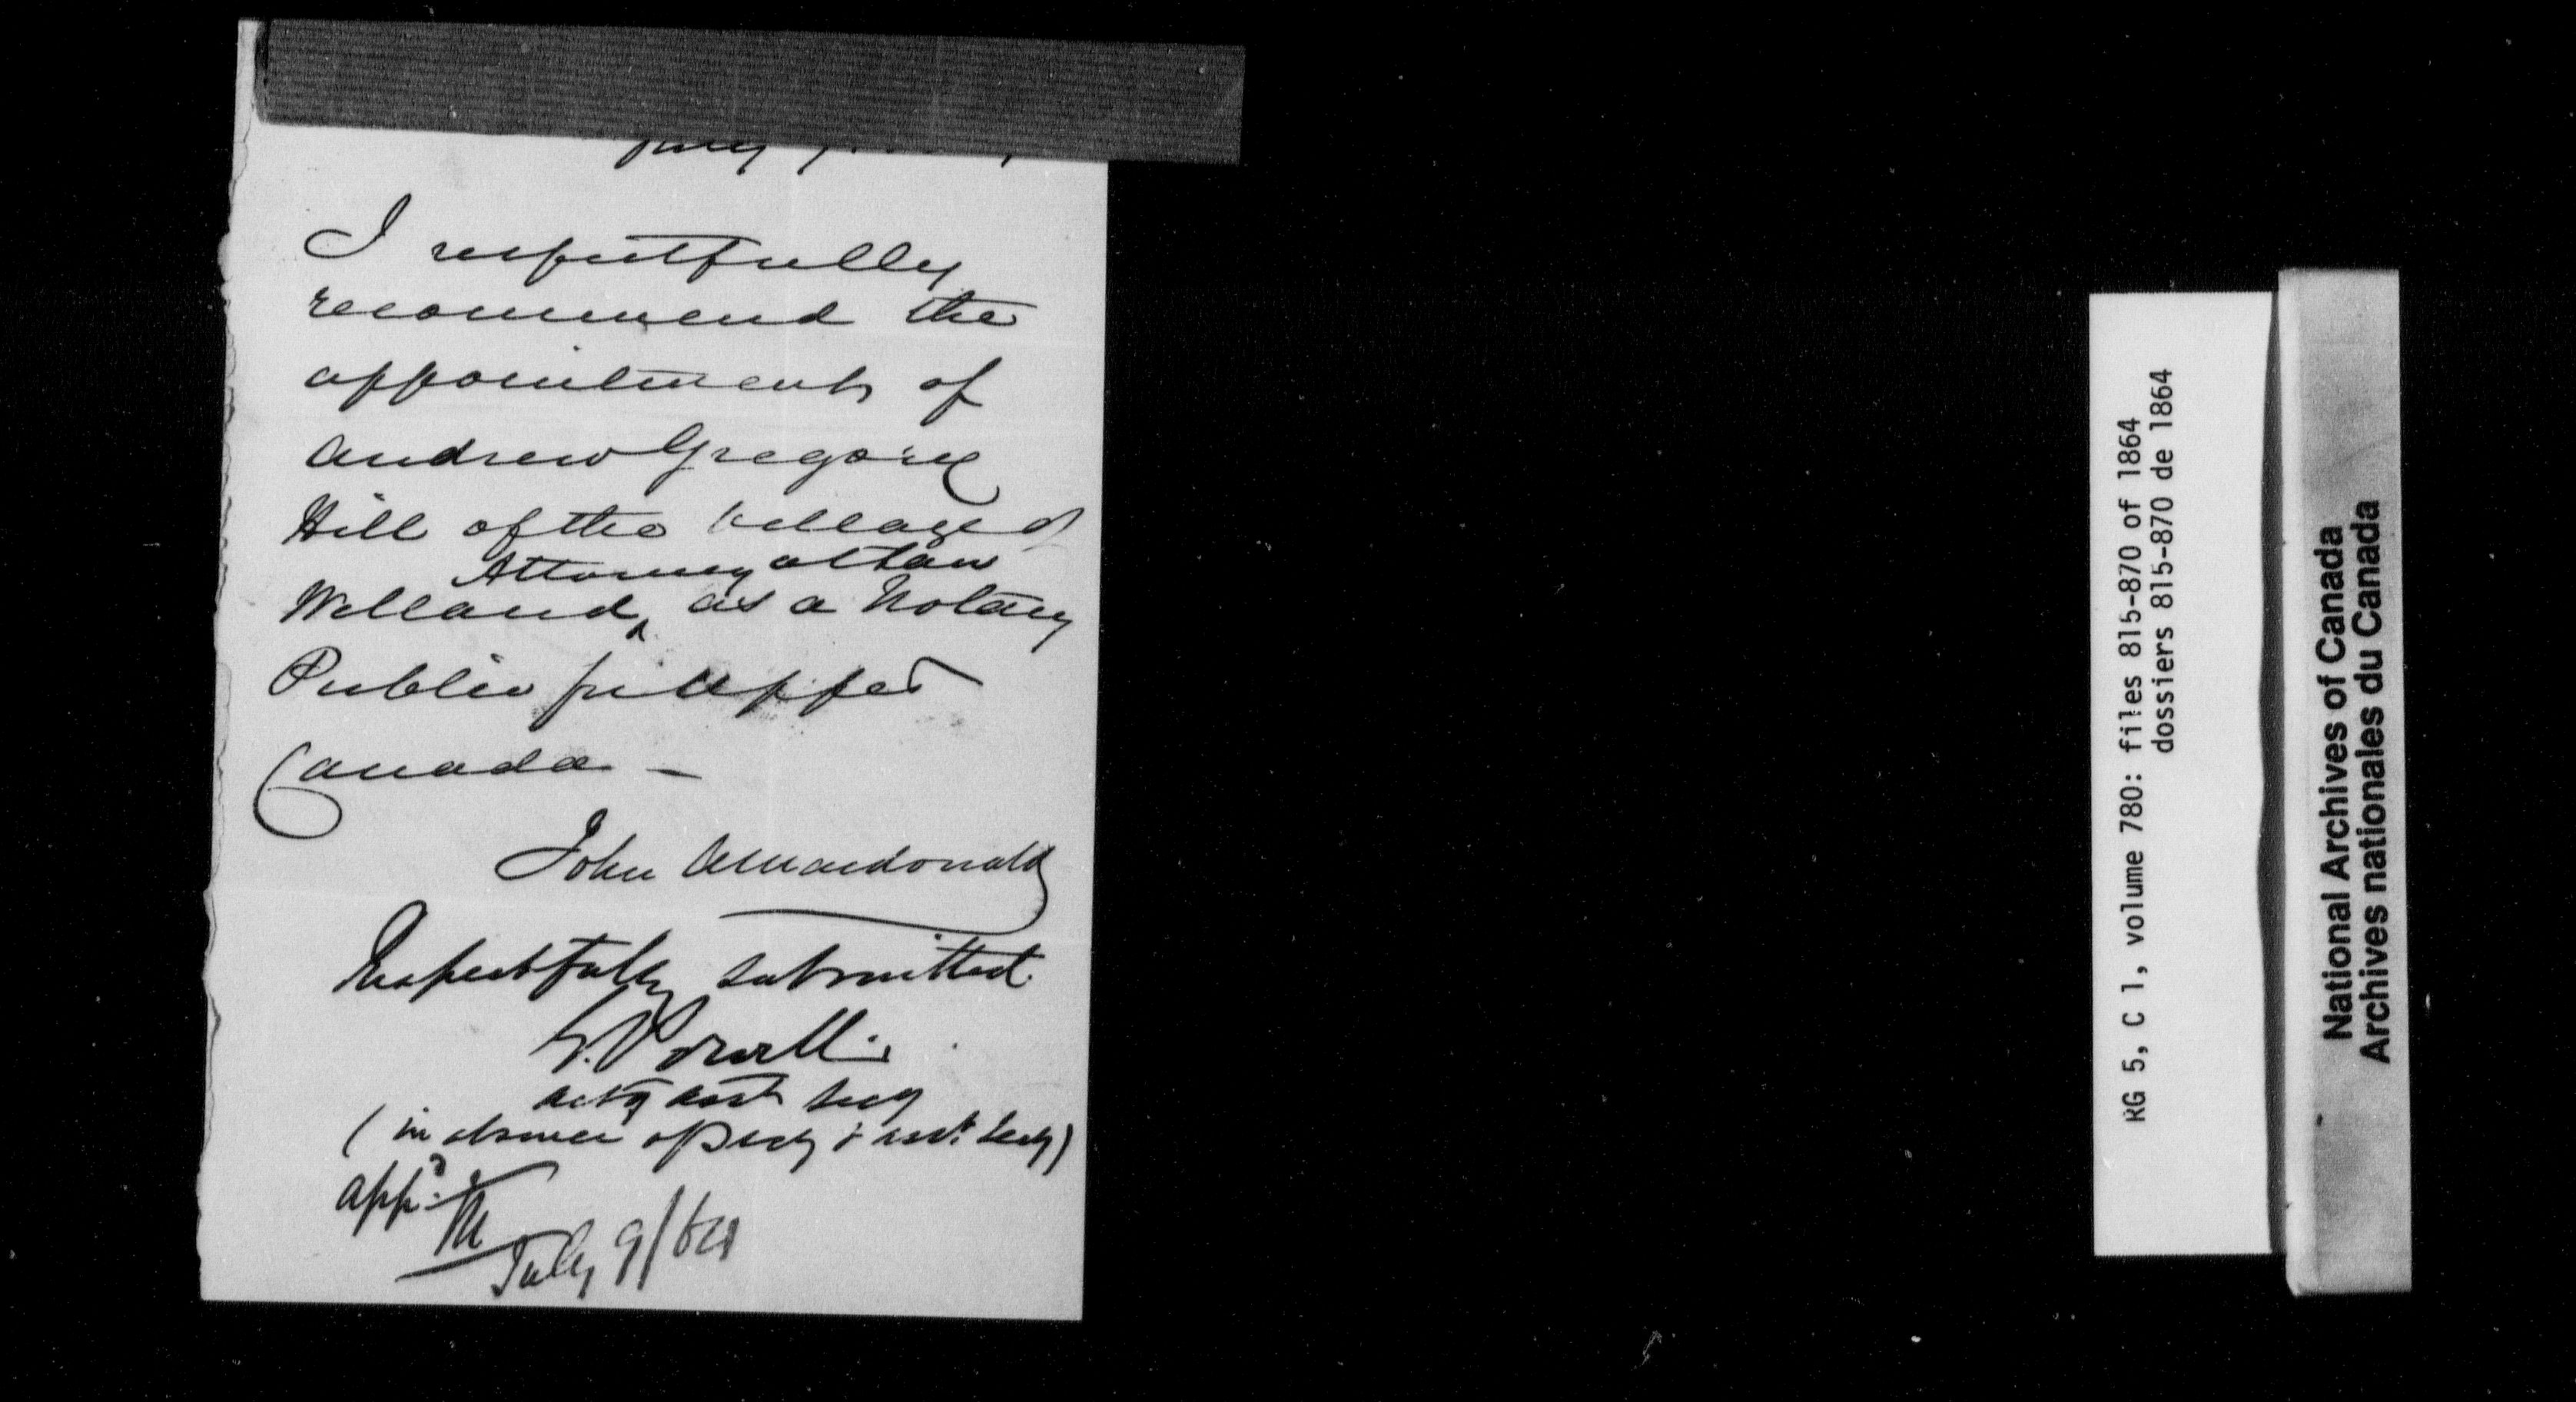 July
I respectfully
recommend the
appointment of
Andrew Gregory
Hill of the Village of
Attorney at Law
Welland, ^ as a Notary
Public for Upper
Canada —
John A Macdonald
Respectfully submitted
G. Powell.
Actg Asst Secy
(in absence of Secy & Asst. Secy)
appd. M
July 9/64
RG 5, C 1, volume 780: files 815-870 of 1864
dossiers 815-870 de 1864
National Archives of Canada
Archives nationales du Canada